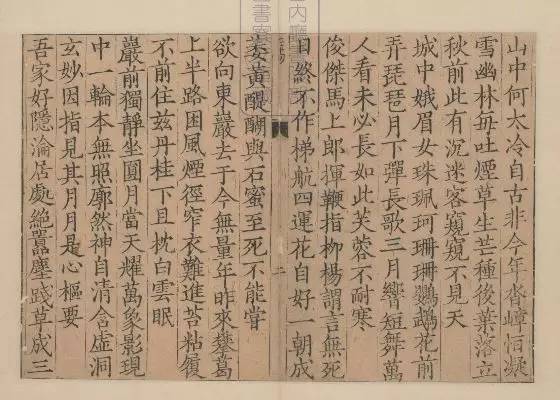 山中何太冷自古非今年沓嶂恒凝
雪幽林每吐煙草生芒種後葉落立
秋前此有沉迷客窺窺不見天
城中娥眉女珠珮珂珊珊鸚鵡花前
弄琵琶月下彈長歌三月響短舞萬
人看未必長如此芙蓉不耐寒
俊傑馬上郎揮鞭指柳楊謂言無死
日終不作梯航四運花自好一朝成
萎黃醍醐與石蜜至死不能嘗
欲向東巖去于今無量年昨來攀葛
上半路困風煙徑窄衣難進苔粘履
不前住茲丹桂下且枕白雲眠
巖前獨靜坐圓月當天耀萬象影現
中一輪本無照廓然神自清含虛洞
玄妙因指見其月月是心樞要
吾家好隱淪居處絕囂塵踐草成三
二